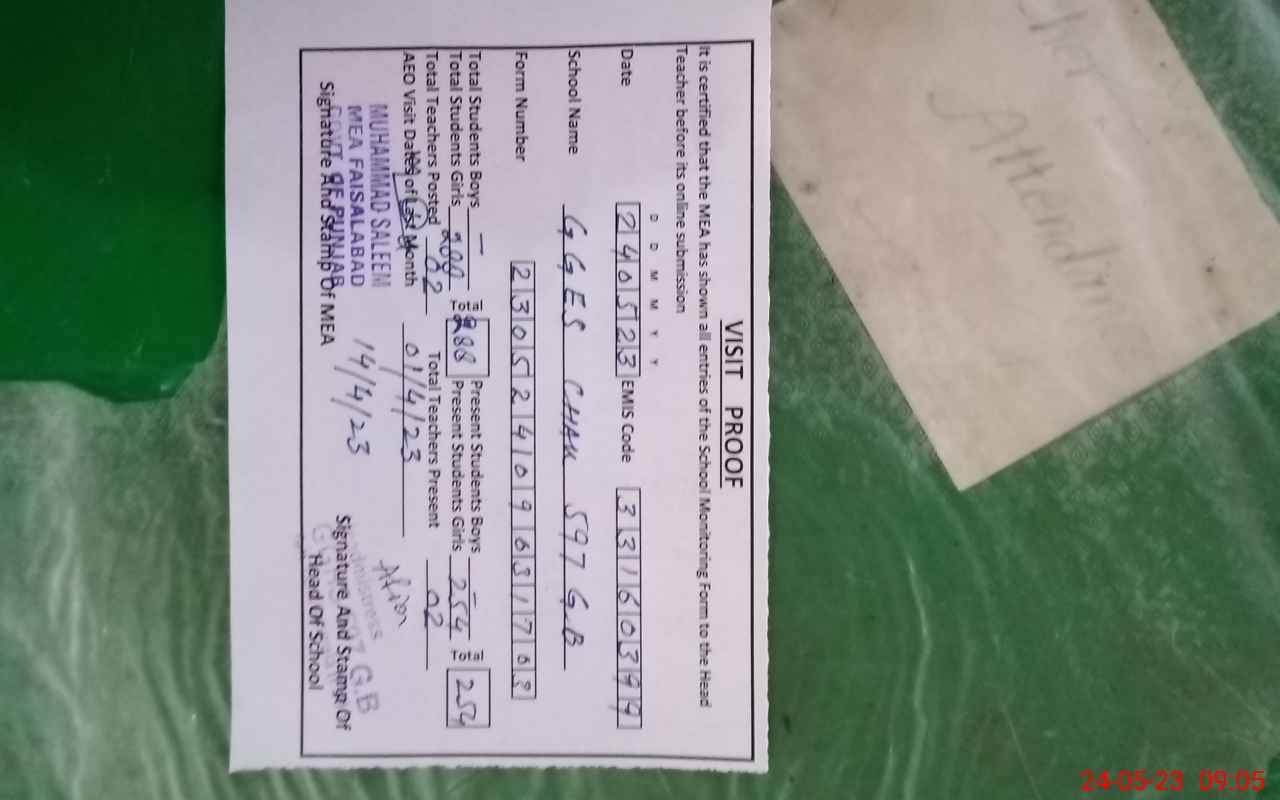 VISIT PROOF
It is certified that the MEA has shown all entries of the School Monitoring Form to the Head
Teacher before its online submission
D D M M Y Y
Date 240523 EMIS Code 33160399
School Name GGES CHAK 597 G.B
Form Number
Total Students Boys - Present Students Boys -
Total Students Girls Present Students Girls 254 254
Total Teachers Posted 02 Total Teachers Present 02
AEO Visit Dates of Last Month 01/4/23
14/4/23
MUHAMMAD SALEEM
MEA FAISALABAD
GOVT OF PUNJAB
Signature And Stamp Of MEA
G.B
Signature And Stamp Of
Head Of School
Attendin
24-05-23 09:05